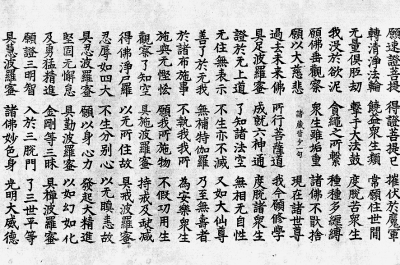 願速證菩提 得證菩提已 摧伏於魔軍
轉清淨法輪 饒益眾生類 常願住世間
無量俱胝劫 擊手大法鼓 度脫苦眾生
我沒於欲泥 貪繩之所繫 種種多纏縛
願佛垂觀察 眾生雖垢重 諸佛不猒捨
願以大慈悲 諸藏皆少一句 現在諸世尊
過去未來佛 所行菩薩道 我今願修學
具足波羅蜜 成就六神通 度脫諸眾生
證於無上道 了知諸法空 無相無自性
無住無表示 不生亦不滅 又如大仙尊
善了於无我 無補特伽羅 乃至無壽者
於諸布施事 不執我我所 為安樂眾生
施與無慳悋 願我所施物 不假功用生
觀察了知空 具施波羅蜜 持戒及缺減
得佛淨尸羅 以無所住故 具戒波羅蜜
忍辱如四大 不生分別心 以無瞋恚故
具忍波羅蜜 願以身心力 發起大精進
堅固無懈怠 具勤波羅蜜 以如幻如化
及勇猛精進 金剛等三昧 具禪波羅蜜
願證三明智 入於三脫門 了三世平等
具慧波羅蜜 諸佛妙色身 光明大威德